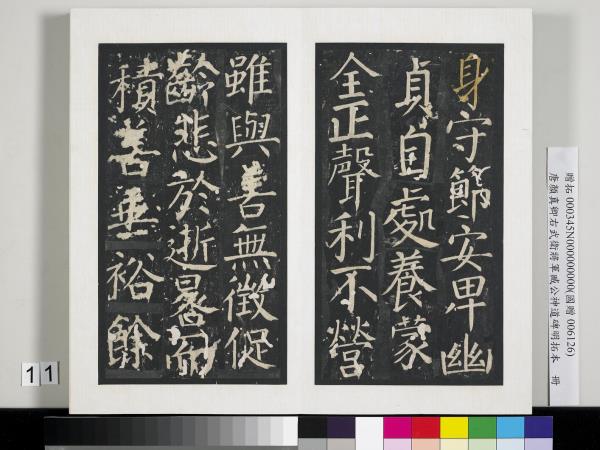 身守節安卑幽
貞自處養蒙
全正聲利不營
雖與善無徵促
齡悲於逝晷而
積善垂裕餘
贈拓 000345N000000000(國贈 006126)
唐顏真卿右武衛將軍臧公神道碑明拓本 冊
11